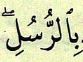 بِالرُّسُلِ ۖ